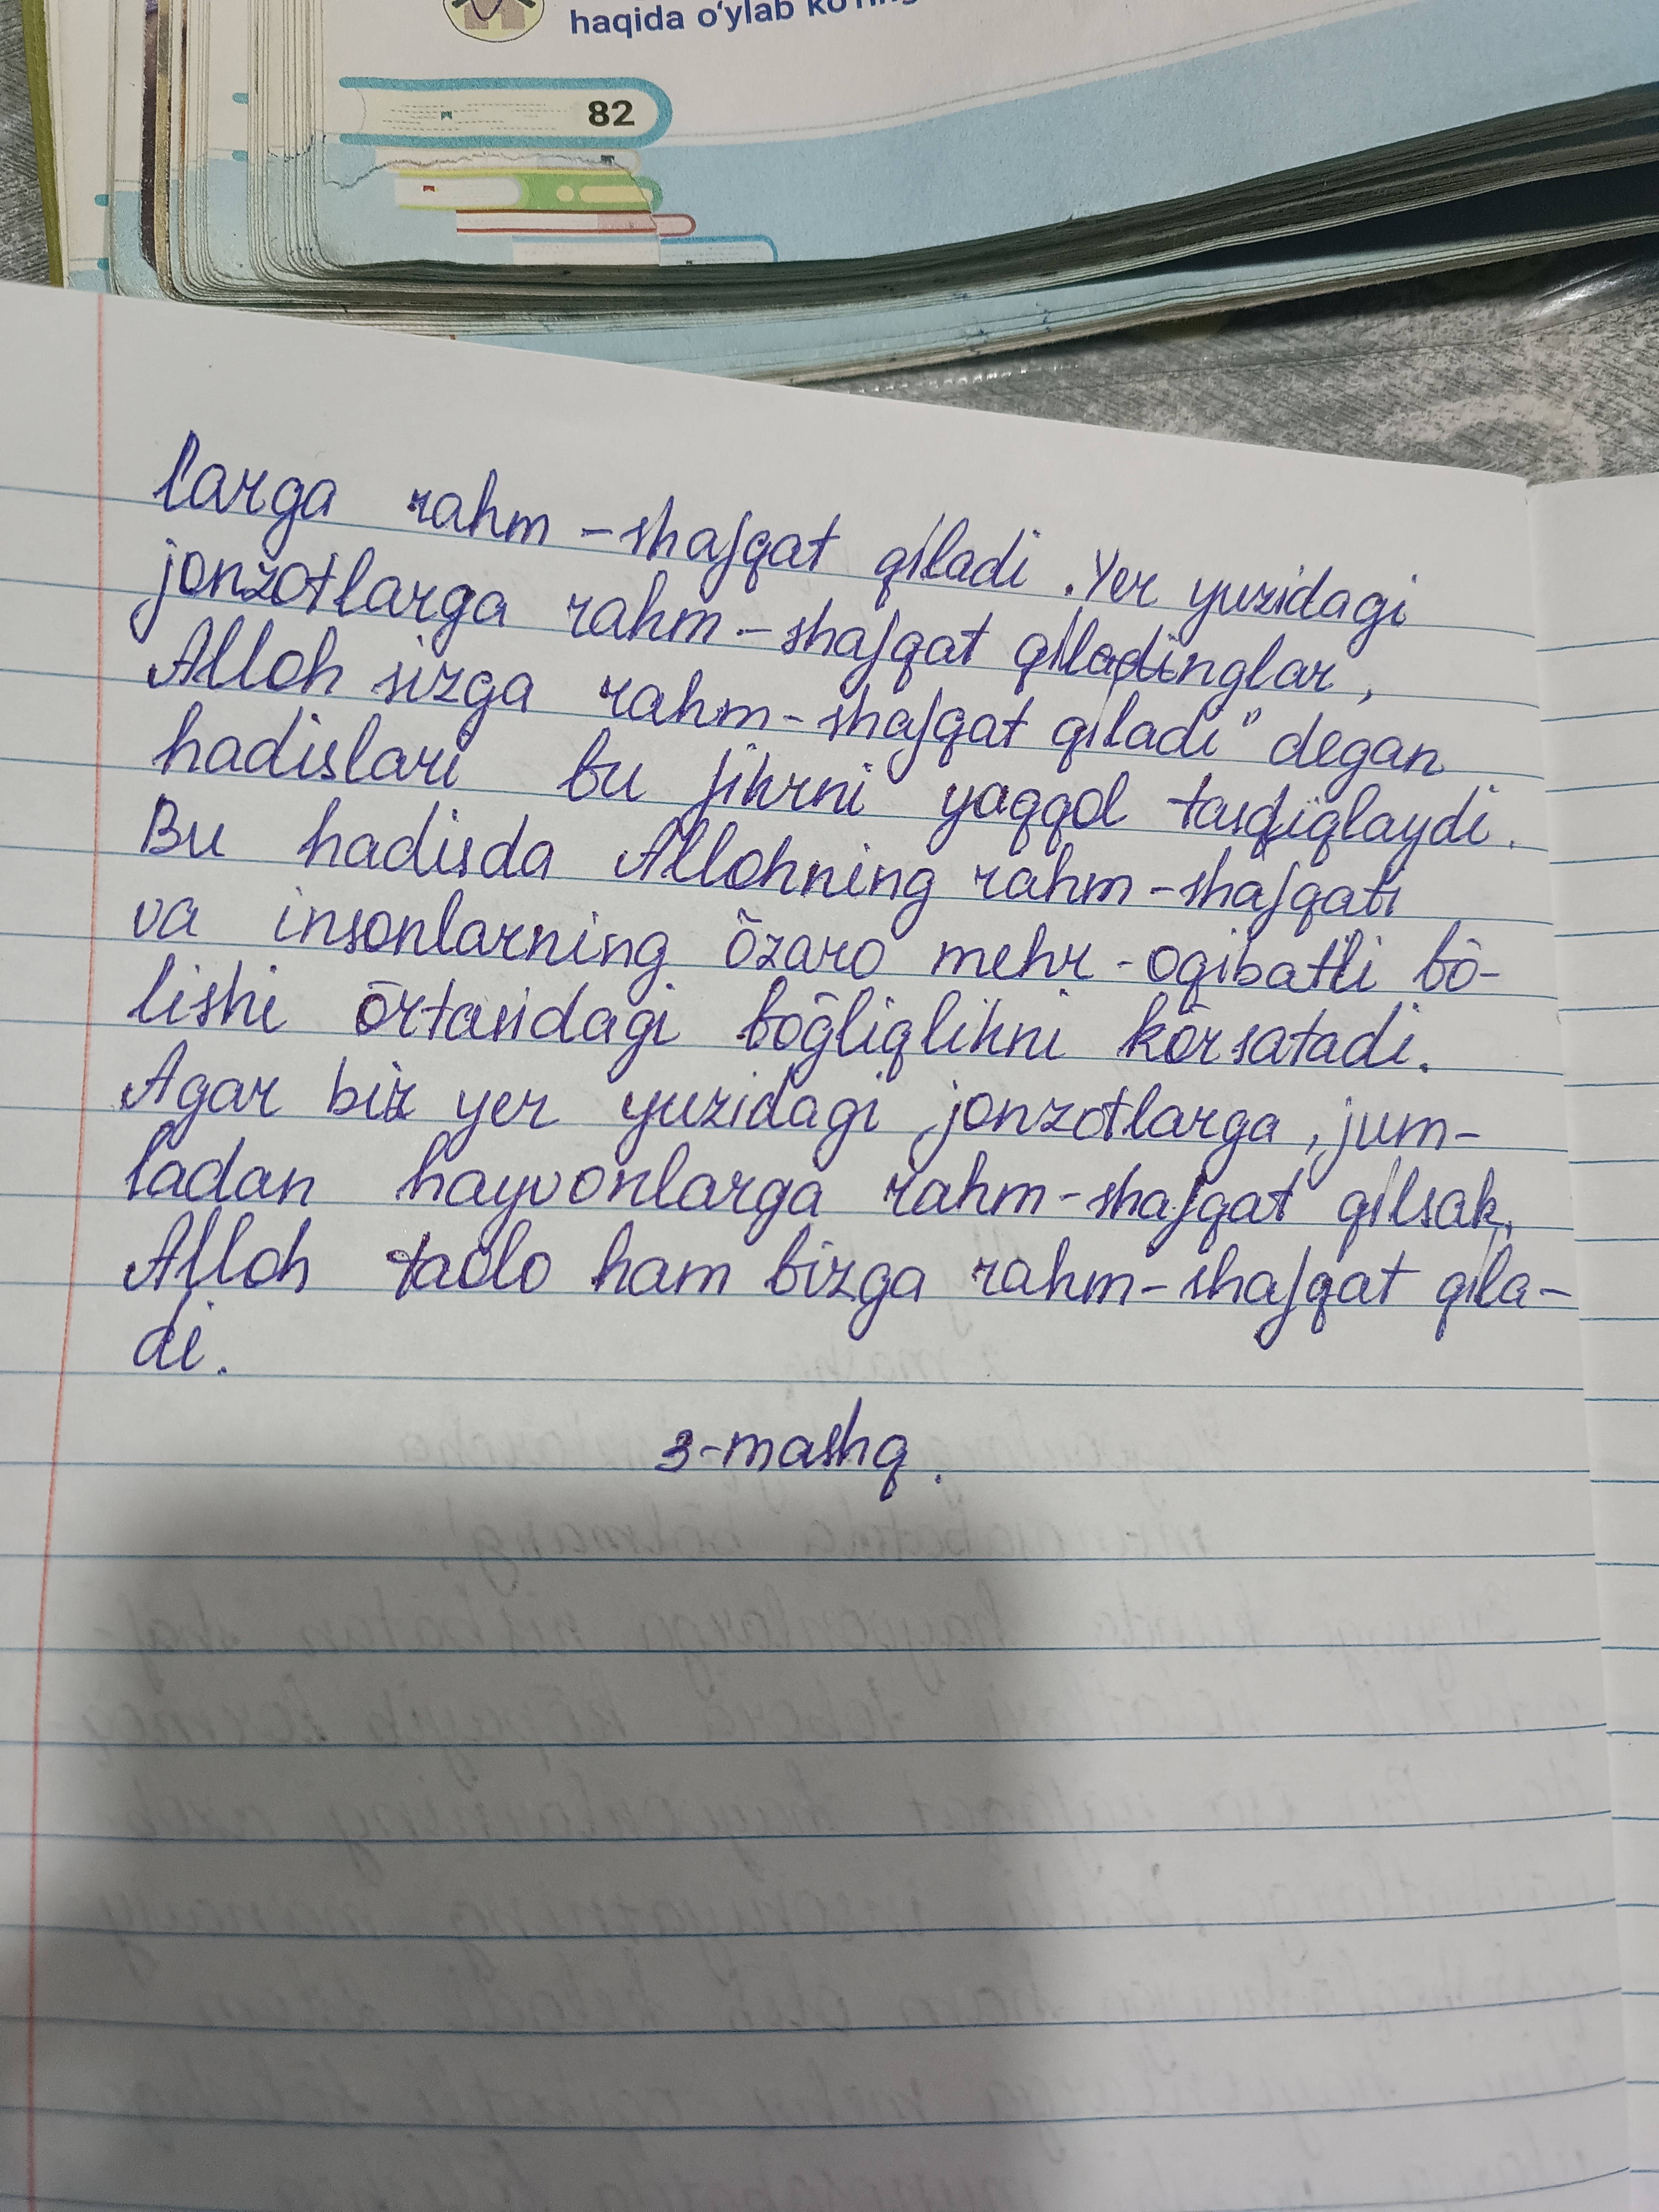 haqida o‘ylab
82
larga rahm-shafqat qiladi. Yer yuzidagi
jonzotlarga rahm-shafqat qiladinglar,
Alloh sizga rahm-shafqat qiladi" degan
hadislari bu fikrni yaqqol tasdiqlaydi.
Bu hadisda Allohning rahm-shafqati
va insonlarning õzaro mehr-oqibatli bõ-
lishi õrtasidagi bõg̃liqlikni kõrsatadi.
Agar biz yer yuzidagi jonzotlarga, jum-
ladan hayvonlarga rahm-shafqat qilsak,
Alloh taolo ham bizga rahm-shafqat qila-
di.
3-mashq.